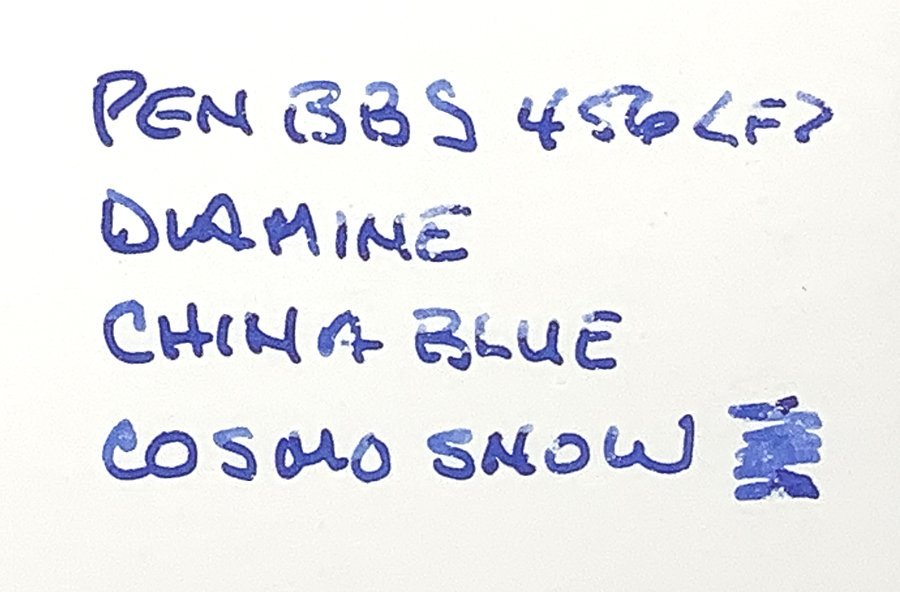 PEN BBS 456 <F>
DIAMINE
CHINA BLUE
COSMO SNOW